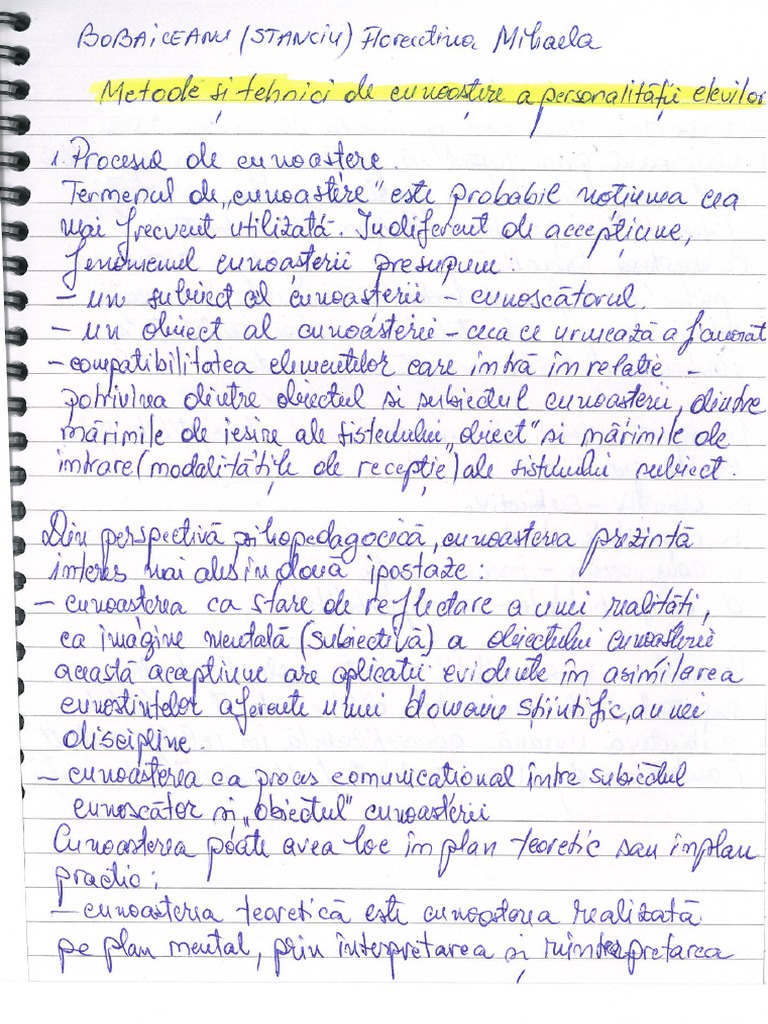 BOBAICEANU (STANCIU) Florentina Mihaela
Metode și tehnici de cunoastere a personalității elevilor
1. Procesul de cunoastere.
Termenul de „cunoastere" este probabil noțiunea cea
mai frecvent utilizată. Indiferent de accepțiune,
fenomenul cunoașterii presupune:
- un subiect al cunoasterii - cunoscătorul.
- un obiect al cunoasterii - ceea ce urmează a fi
- compatibilitatea elementelor care intră în relatie -
potrivirea dintre obiectul si subiectul cunoasterii, dintre
mărimile de iesire ale sistemului „obiect" si mărimile de
intrare (modalitățile de recepție) ale sistemului subiect.
Din perspectivă psihopedagogică, cunoasterea prezintă
interes mai ales în două ipostaze:
- cunoasterea ca stare de reflectare a unei realităti,
ca imagine mentală (subiectivă) a obiectului cunoasterii
această acceptiune are aplicatii evidente în asimilarea
cunostintelor aferente unui domeniu stiintific, a unei
discipline.
- cunoasterea ca proces comunicational între subiectul
cunoscător si „obiectul" cunoasterii
Cunoasterea poate avea loc în plan teoretic sau în plan
practic:
- cunoasterea teoretică este cunoasterea realizată
pe plan mental, prin interpretarea și reinterpretarea